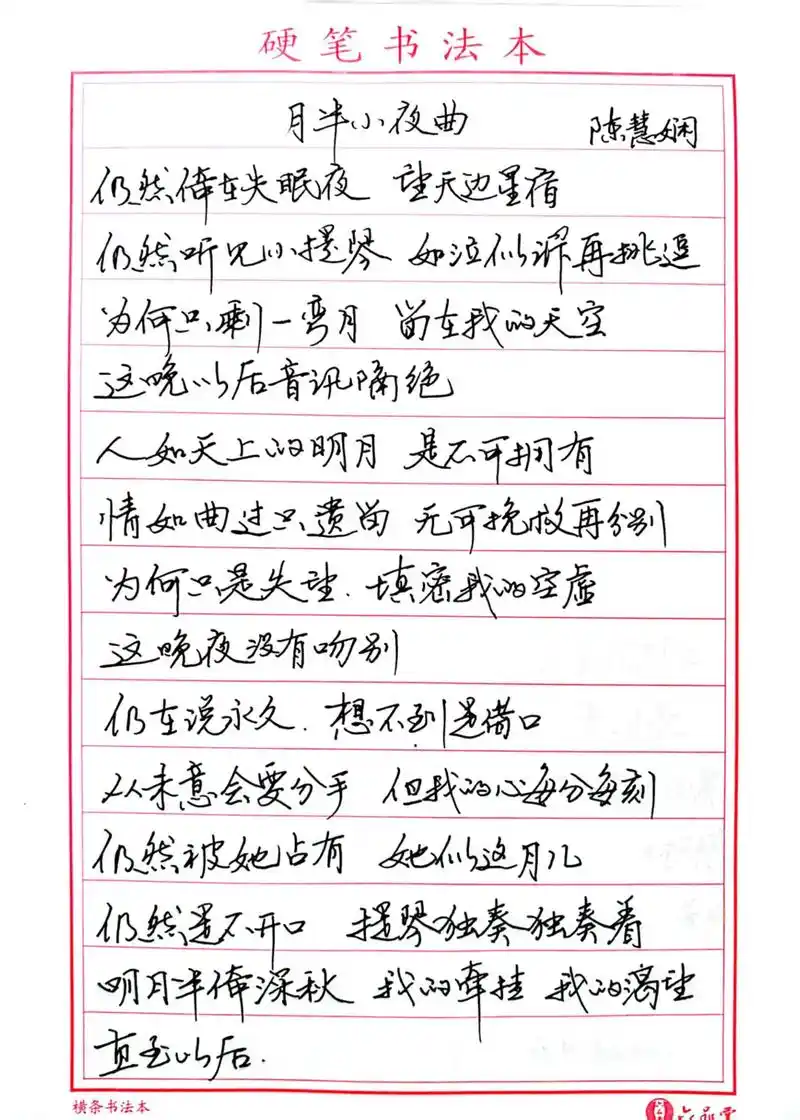 硬笔书法本
月半小夜曲 陈慧娴
仍然倚在失眠夜 望天边星宿
仍然听见小提琴 如泣似诉再挑逗
为何只剩一弯月 留在我的天空
这晚以后音讯隔绝
人如天上的明月 是不可拥有
情如曲过只遗留 无可挽救再分别
为何只是失望.填密我的空虚
这晚夜没有吻别
仍在说永久.想不到是借口
从未意会要分手 但我的心每分每刻
仍然被她占有 她似这月儿
仍然是不开口 提琴独奏独奏着
明月半倚深秋 我的牵挂 我的渴望
直至以后.
横条书法本
六品堂